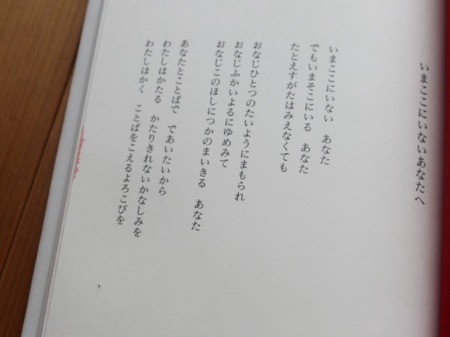 いまここにいないあなたへ
いまここにいない　あなた
でもいまそこにいる　あなた
たとえすがたはみえなくても
おなじひとつのたいようにまもられ
おなじふかいよるにゆめみて
おなじこのほしにつかのまいきる　あなた
あなたとことばで　であいたいから
わたしはかたる　かたりきれないかなしみを
わたしはかく　ことばをこえるよろこびを